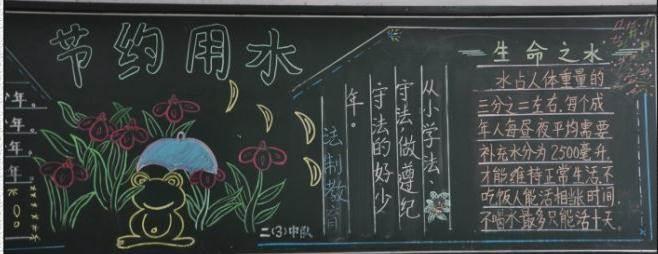 节约用水
年。
年。
年。
年。
二(3)中队
法制教育
从小学法、
守法,做遵纪
守法的好少
年。
生命之水
水占人体重量的
三分之二左右,每个成
年人每昼夜平均需要
补充水分为2500毫升,
才能维持正常生活,不
吃饭人能活相当长时间,
不喝水最多只能活十天